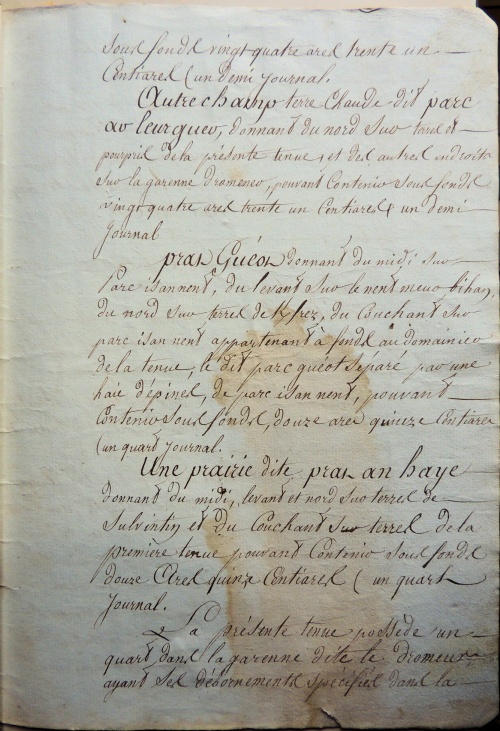 sous fonds vingt quatre ares trente un
Centiares (un Demi Journal.
Autre champ terre Chaude dit parc
ar leurguer, donnant du nord sur terres et
pourpril de la présente tenue, et des autres endroits
sur la garenne Dromener, pouvant Contenir sous fonds
vingt quatre ares trente un Centiares (un demi
Journal
pras Guéot donnant du midi sur
Parc isannent, du levant sur le nent meur bihan,
du nord sur terres de frez, du Couchant sur
parc isan nent appartenant à fonds au domainier
de la tenue, le dit parc guéot séparé par une
haie d'épines, de parc isan nent, pouvant
Contenir sous fonds, douze ares quinze Centiares
(un quart Journal.
Une prairie dite pras an haye
donnant du midi, levant et nord sur terres de
Sulvintin et du Couchant sur terres de la
premiere tenue pouvant Contenir sous fonds
douze Ares quinze Centiares (un quart
Journal.
La présente tenue possède un
quart dans la garenne dite le dromeur
ayant ses débornements spécifiés dans la